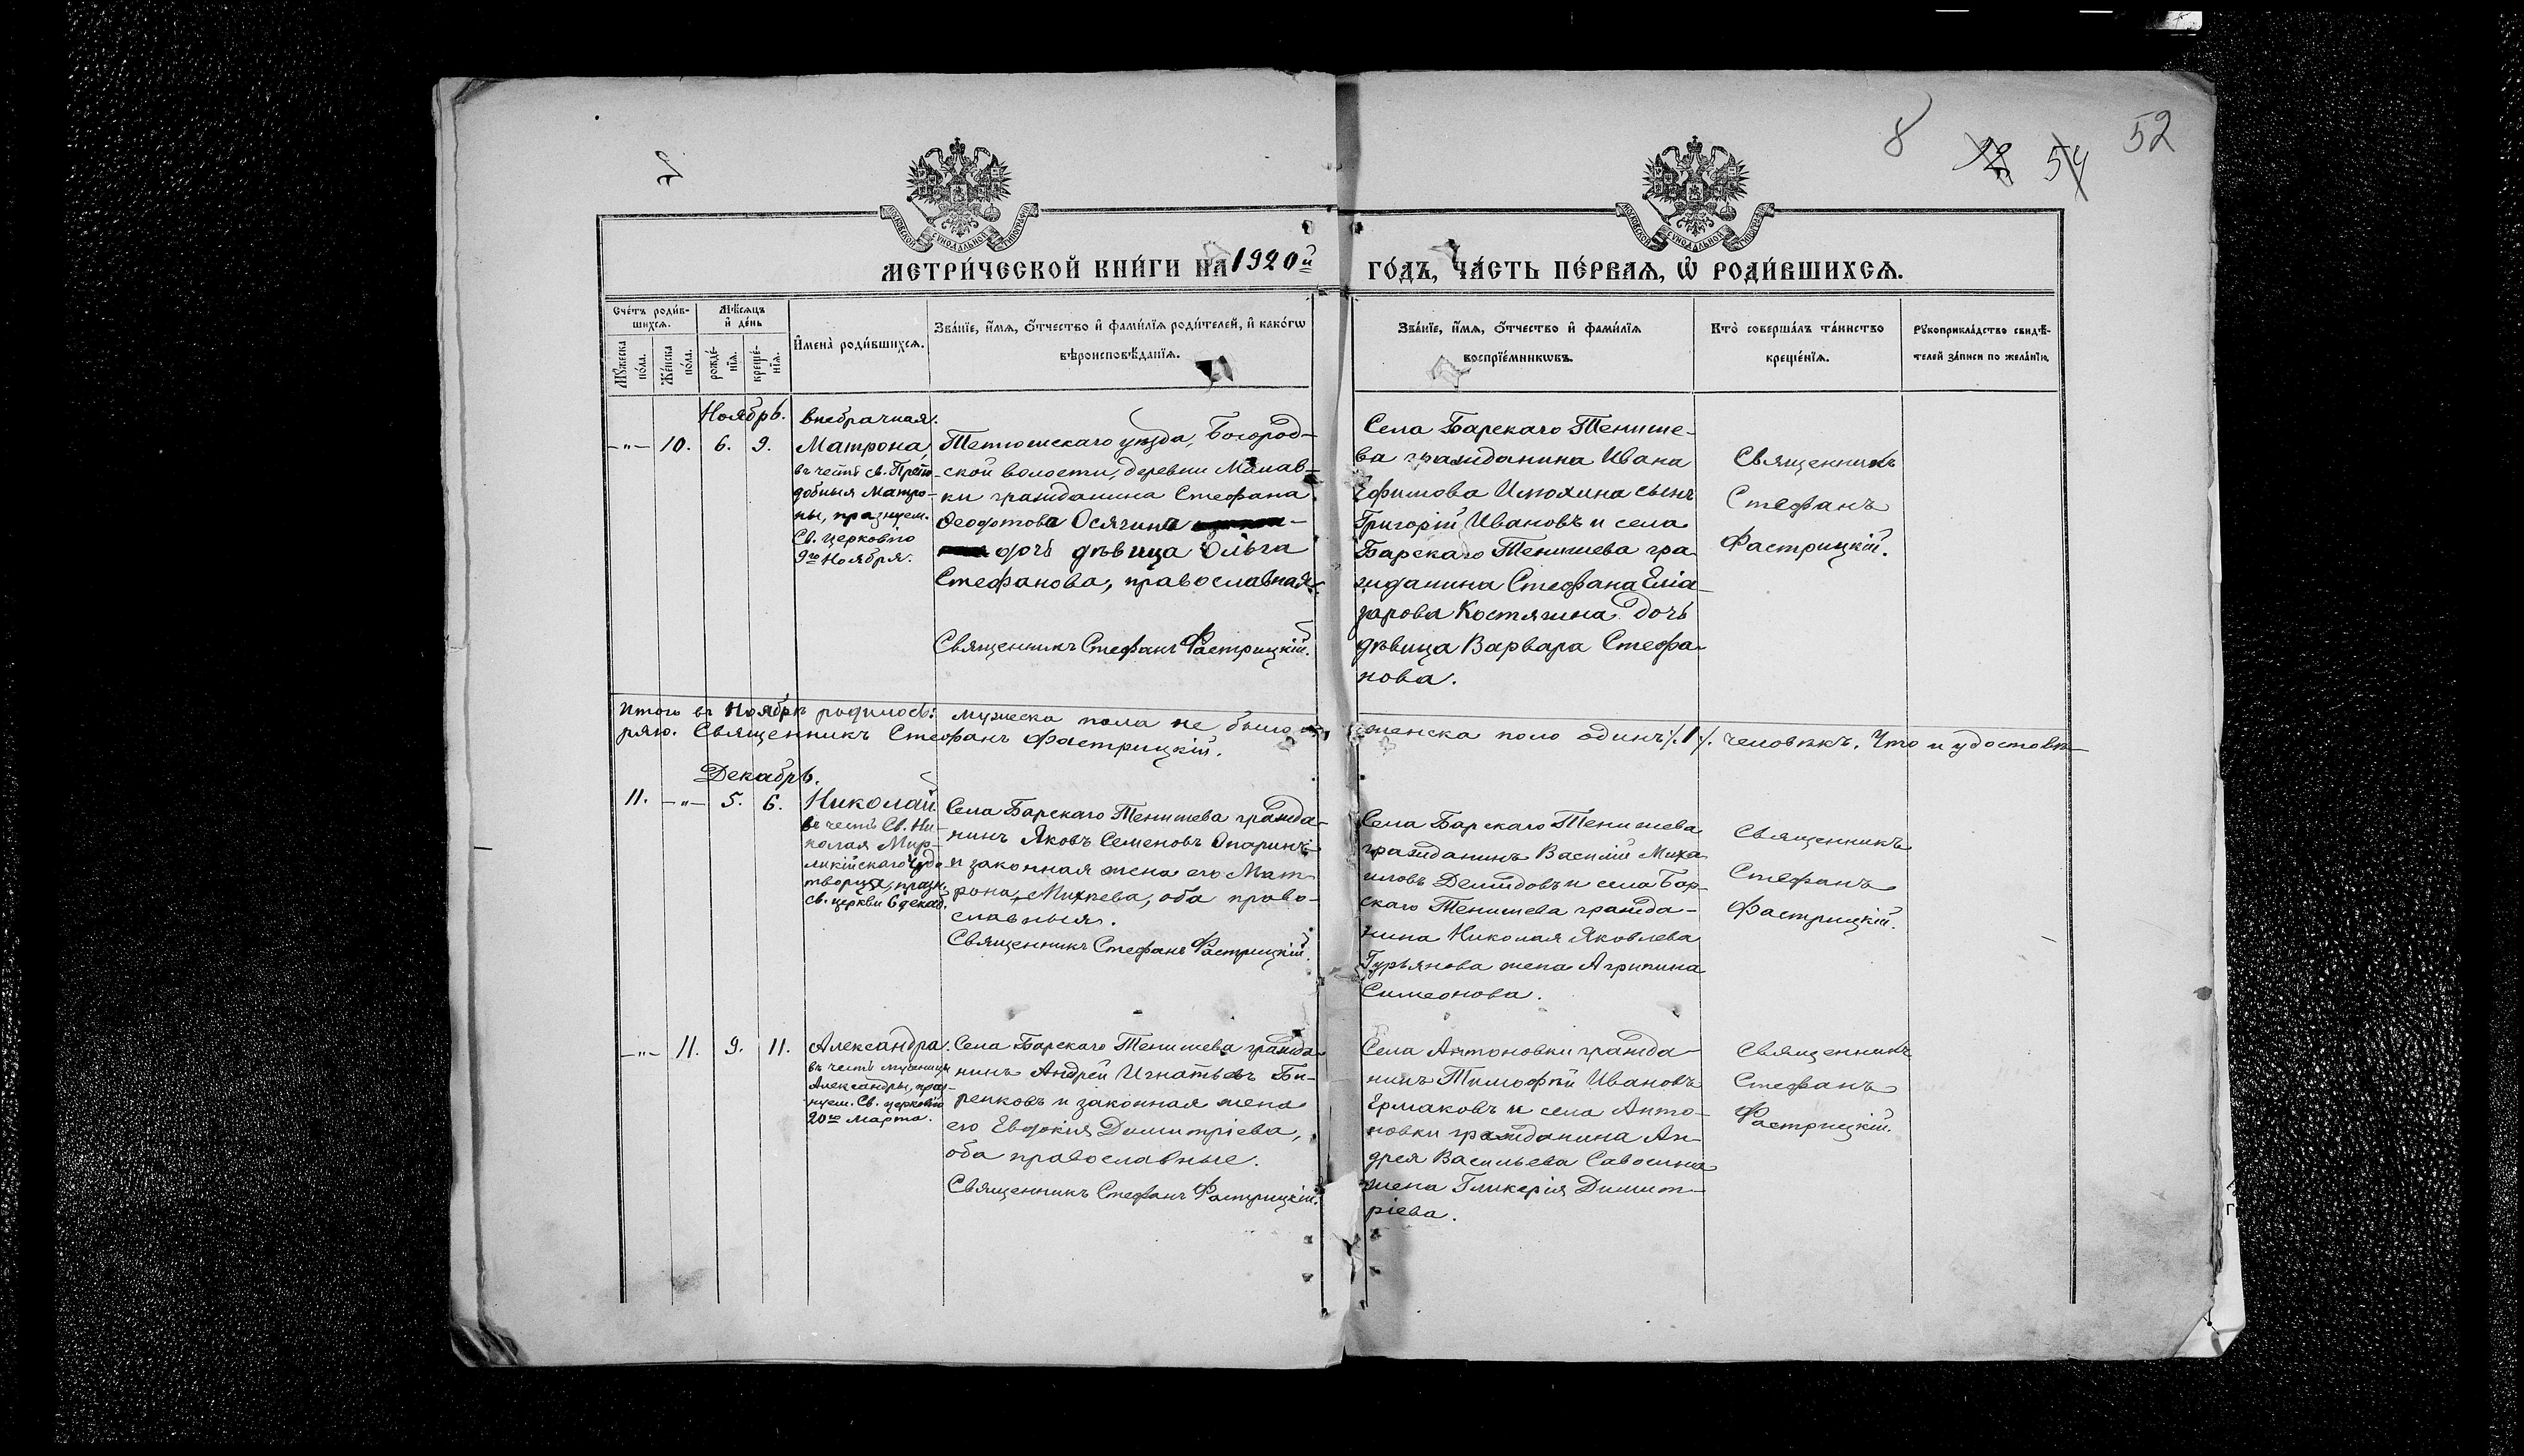 8 12 54 52
МОСКОВСКОЙ СУНОДАЛЬНОЙ ТИПОГРАФІИ
МОСКОВСКОЙ СУНОДАЛЬНОЙ ТИПОГРАФІИ
МЕТРИ́ЧЕСКОЙ КНИ́ГИ НА 1920й ГО́ДЪ, ЧА́СТЬ ПЕ́РВАѦ, Ѡ҆ РОДИ́ВШИХСѦ.
Сче́тъ роди́в-
шихсѧ.
Мꙋ́жеска по́ла.
Же́нска по́ла.
Мѣ́сѧцъ и҆ де́нь
рожде́-
нїѧ.
креще́-
нїѧ.
И҆мена̀ роди́вшихсѧ.
Зва́нїе, и҆́мѧ, ѻ҆́тчество и҆ фами́лїѧ роди́телей, и҆ како́гѡ
вѣроисповѣ́данїѧ.
Зва́нїе, и҆́мѧ, ѻ҆́тчество и҆ фами́лїѧ
воспрїе́мникѡвъ.
Кто̀ соверша́лъ та́инство
креще́нїѧ.
Рꙋкоприкла́дство свидѣ́-
телей за́писи по жела́нїю.
Ноябрь.
-"- 10. 6. 9.
внебрачная.
Матрона,
въ честь св. Препо-
добныя Матро-
ны, празнуем.
Св. Церковію
9го Ноября.
Тетюшскаго уѣзда, Богород-
ской волости, деревни Мамав-
ки гражданина Стефана
Ѳеофтова Осягина
дочь дѣвица Ольга
Стефанова, православная.
Священникъ Стефанъ Фастрицкій.
Села Барскаго Тенише-
ва гражданина Ивана
Ефимова Илюхина сынъ
Григорій Ивановъ и села
Барскаго Тенишева гра
жданина Стефана Еліа-
зарова Костягина дочь
дѣвица Варвара Стефа-
нова.
Священникъ
Стефанъ
Фастрицкій.
Итого въ Ноябрѣ родилось: мужеска пола не было и, женска поло одинъ ./.1./. человѣкъ. Что и удостовѣ-
ряю. Священникъ Стефанъ Фастрицкій.
Декабрь.
11. -"- 5. 6.
Николай.
въ честь Св. Ни-
колая Мир-
ликійскаго Чудо
творца, празн.
св. церкви 6 декаб.
Села Барскаго Тенишева гражда-
нинъ Яковъ Семеновъ Опаринъ
и законная жена его Мат-
рона Михеева, оба право-
славныя.
Священникъ Стефанъ Фастрицкій.
Села Барскаго Тенишева
гражданинъ Василій Миха
иловъ Демидовъ и села Бар-
скаго Тенишева гражда-
нина Николая Яковлева
Гурьянова жена Агрипина
Симеонова.
Священникъ
Стефанъ
Фастрицкій.
-"- 11. 9. 11.
Александра.
въ честь мученицы
Александры, праз-
нуем. Св. церковію
20го Марта.
Села Барскаго Тенишева гражда-
нинъ Андрей Игнатьевъ Би-
репковъ и законная жена
его Евдокія Димитріева,
оба православные.
Священникъ Стефанъ Фастрицкій.
Села Антоновки гражда-
нинъ Тимофѣй Ивановъ
Ермаковъ и села Анто-
новки гражданина Ан-
дрея Васильева Савосина
жена Гликерія Димит-
ріева.
Священникъ
Стефанъ
Фастрицкій.